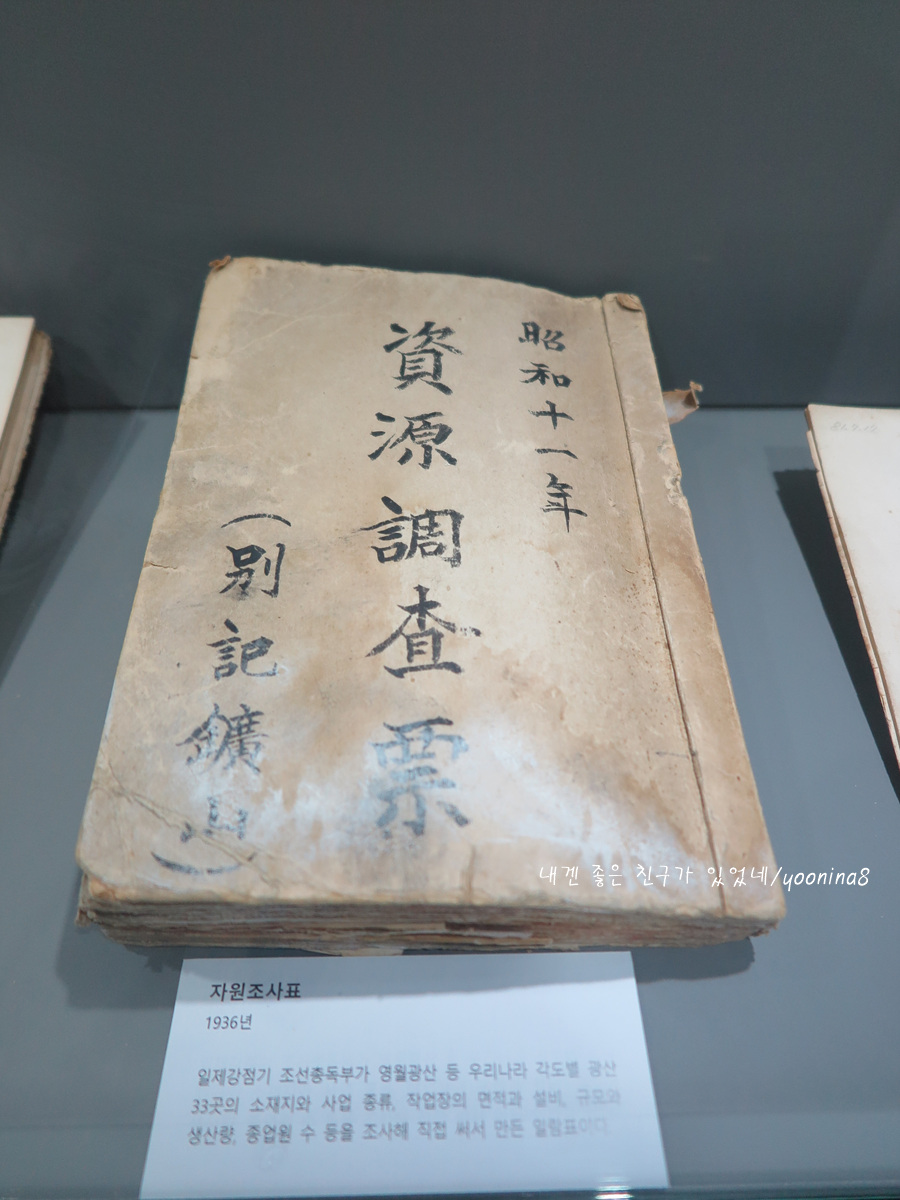 昭和十一年
資源調查票
(別記鑛山)
내겐 좋은 친구가 있었네/yoonina8
자원조사표
1936년
일제강점기 조선총독부가 영월광산 등 우리나라 각도별 광산
33곳의 소재지와 사업 종류, 작업장의 면적과 설비, 규모와
생산량, 종업원 수 등을 조사해 직접 써서 만든 일람표이다.